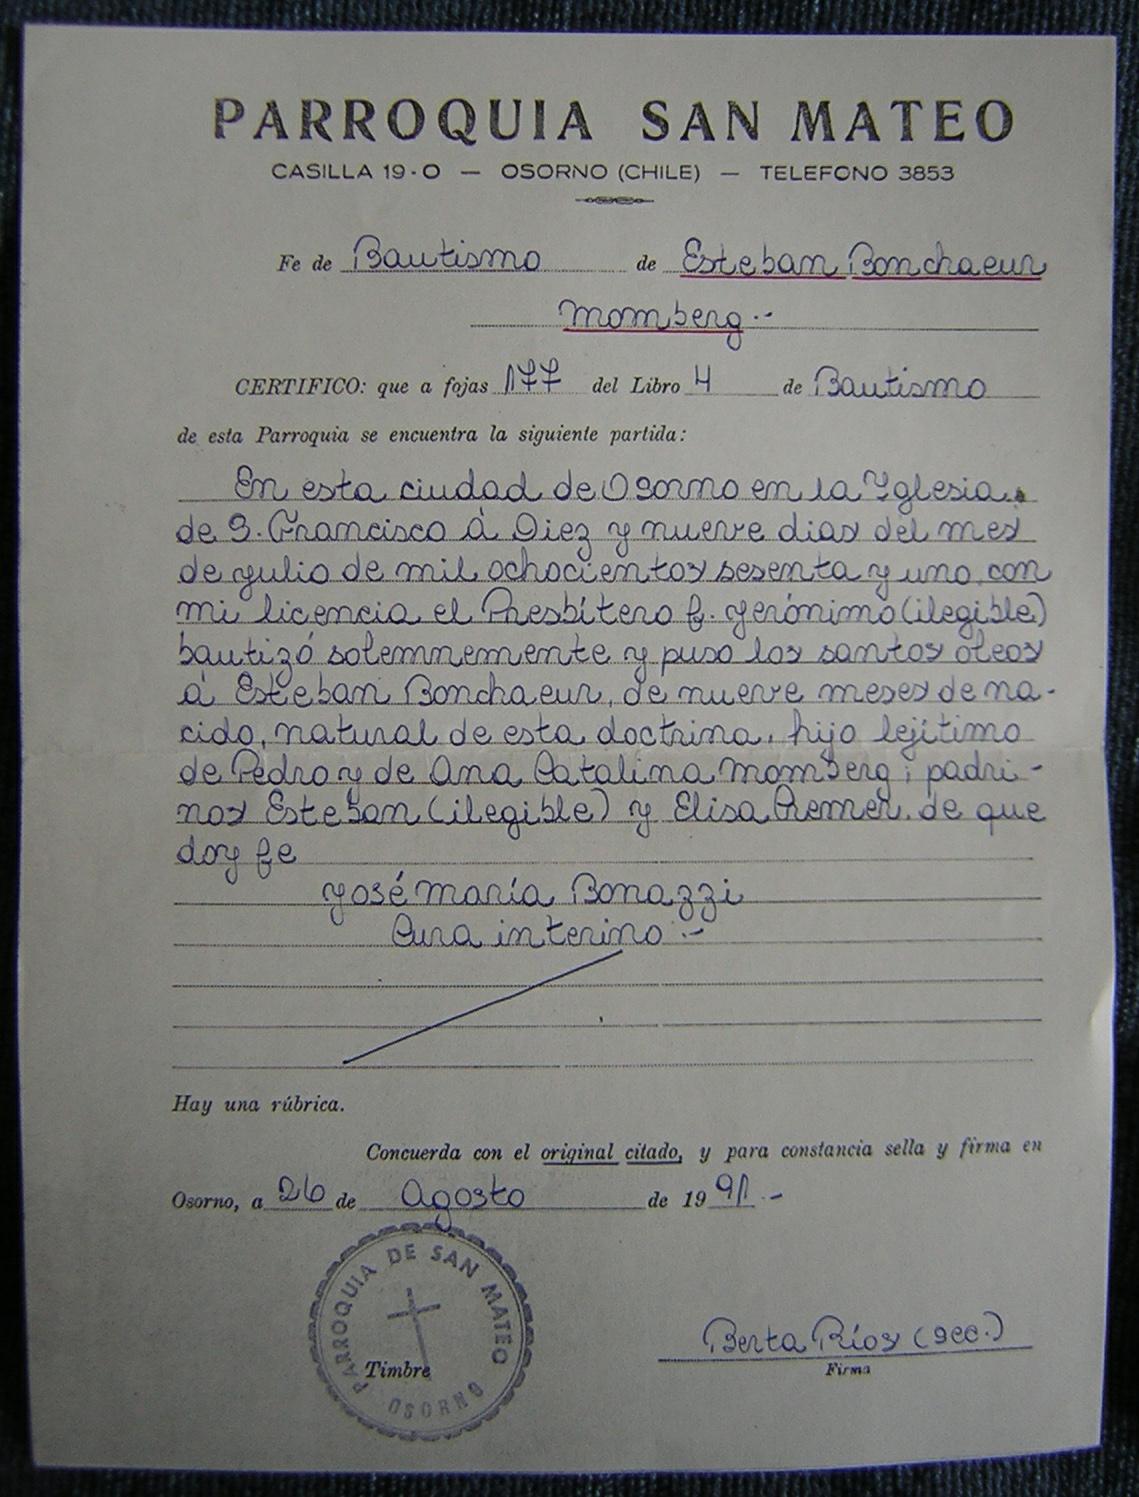 PARROQUIA SAN MATEO
CASILLA 19-O — OSORNO (CHILE) — TELEFONO 3853
Fe de Bautismo de Esteban Bonchaeur
Momberg.-
CERTIFICO: que a fojas 177 del Libro 4 de Bautismo
de esta Parroquia se encuentra la siguiente partida:
En esta ciudad de Osorno en la Yglesia
de S. Francisco á Diez y nueve dias del mes
de yulio de mil ochocientos sesenta y uno, con
mi licencia el Presbítero f. Yerónimo (ilegible)
bautizó solemnemente y puso los santos óleos
á Esteban Bonchaeur, de nueve meses de na-
cido, natural de esta doctrina, hijo lejítimo
de Pedro y de Ana Catalina Momberg; padri-
nos Esteban (ilegible) y Elisa de que
doy fe
José María Bonazzi
Cura interino.-
Hay una rúbrica.
Concuerda con el original citado, y para constancia sella y firma en
Osorno, a 26 de Agosto de 1991.-
PARROQUIA DE SAN MATEO
OSORNO
Timbre
Berta Ríos (sec.)
Firma